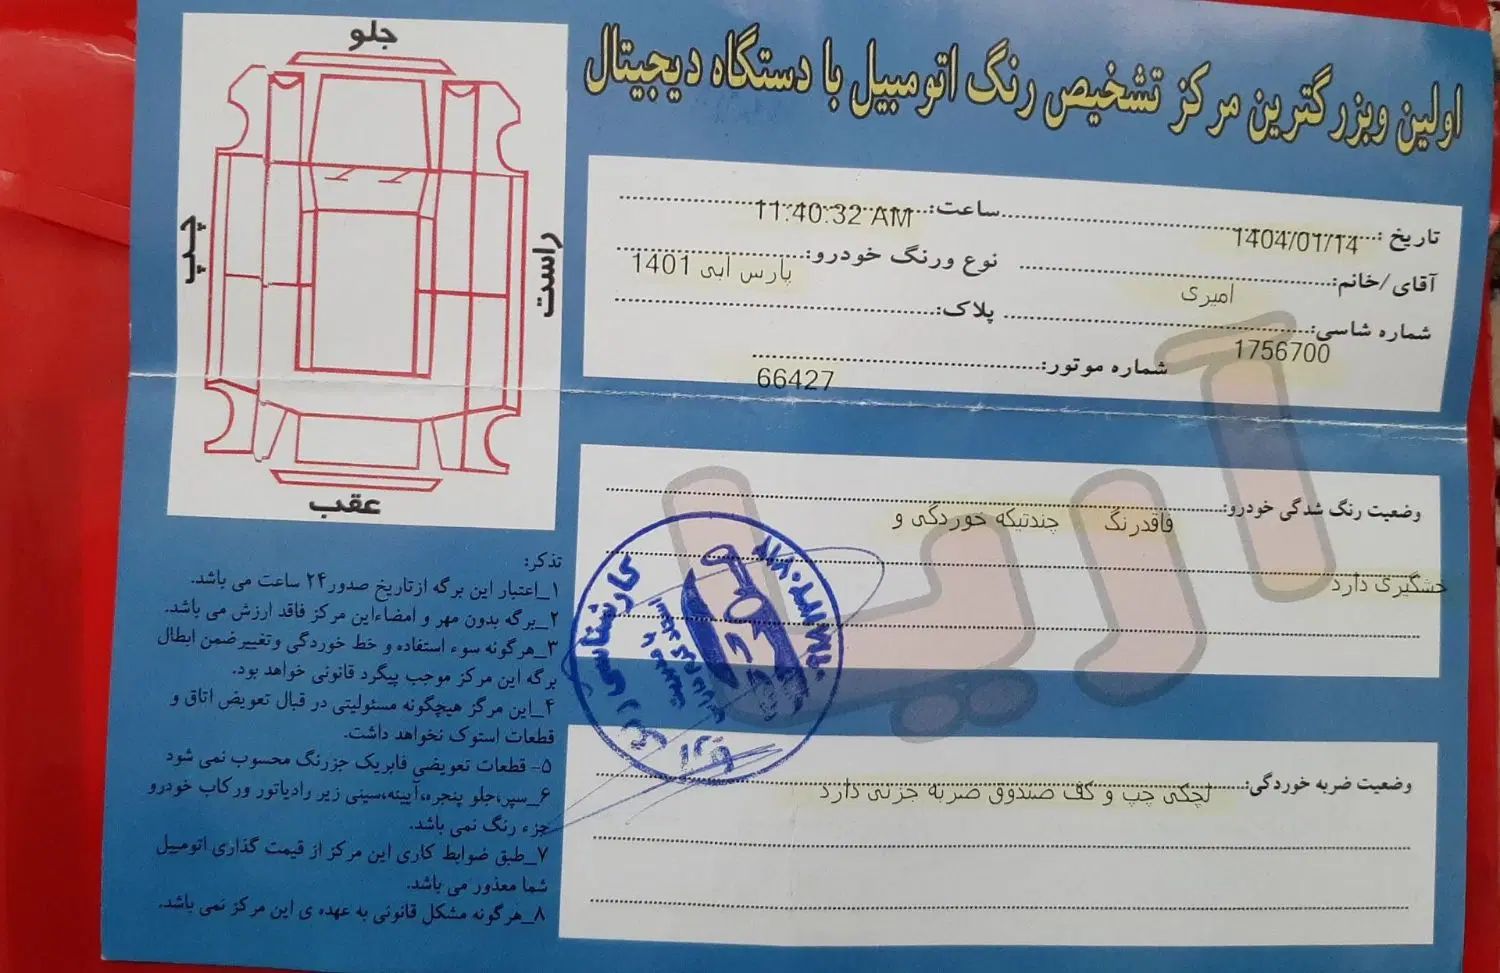 اولین وبزرگترین مرکز تشخیص رنگ اتومبیل با دستگاه دیجیتال
تاریخ : 1404/01/14 ساعت: 11:40:32 AM
آقای /خانم: امیری نوع ورنگ خودرو: پارس ابی 1401
شماره شاسی: 1756700 پلاک:
شماره موتور: 66427
وضعیت رنگ شدگی خودرو: فاقدرنگ چندتیکه خوردگی و
خشگیری دارد
وضعیت ضربه خوردگی: لچکی چپ و کف صندوق ضربه جزئی دارد
آریا
جلو
چپ
راست
عقب
تذکر:
۱_اعتبار این برگه ازتاریخ صدور۲۴ ساعت می باشد.
۲_برگه بدون مهر و امضاءاین مرکز فاقد ارزش می باشد.
۳_هرگونه سوء استفاده و خط خوردگی وتغییرضمن ابطال
برگه این مرکز موجب پیگرد قانونی خواهد بود.
۴_این مرکز هیچگونه مسئولیتی در قبال تعویض اتاق و
قطعات استوک نخواهد داشت.
۵- قطعات تعویضی فابریک جزرنگ محسوب نمی شود
۶_سپر،جلو پنجره،آیینه،سینی زیر رادیاتور ورکاب خودرو
جزء رنگ نمی باشد.
۷_طبق ضوابط کاری این مرکز از قیمت گذاری اتومبیل
شما معذور می باشد.
۸_هرگونه مشکل قانونی به عهده ی این مرکز نمی باشد.
کارشناسی رنگ آریا